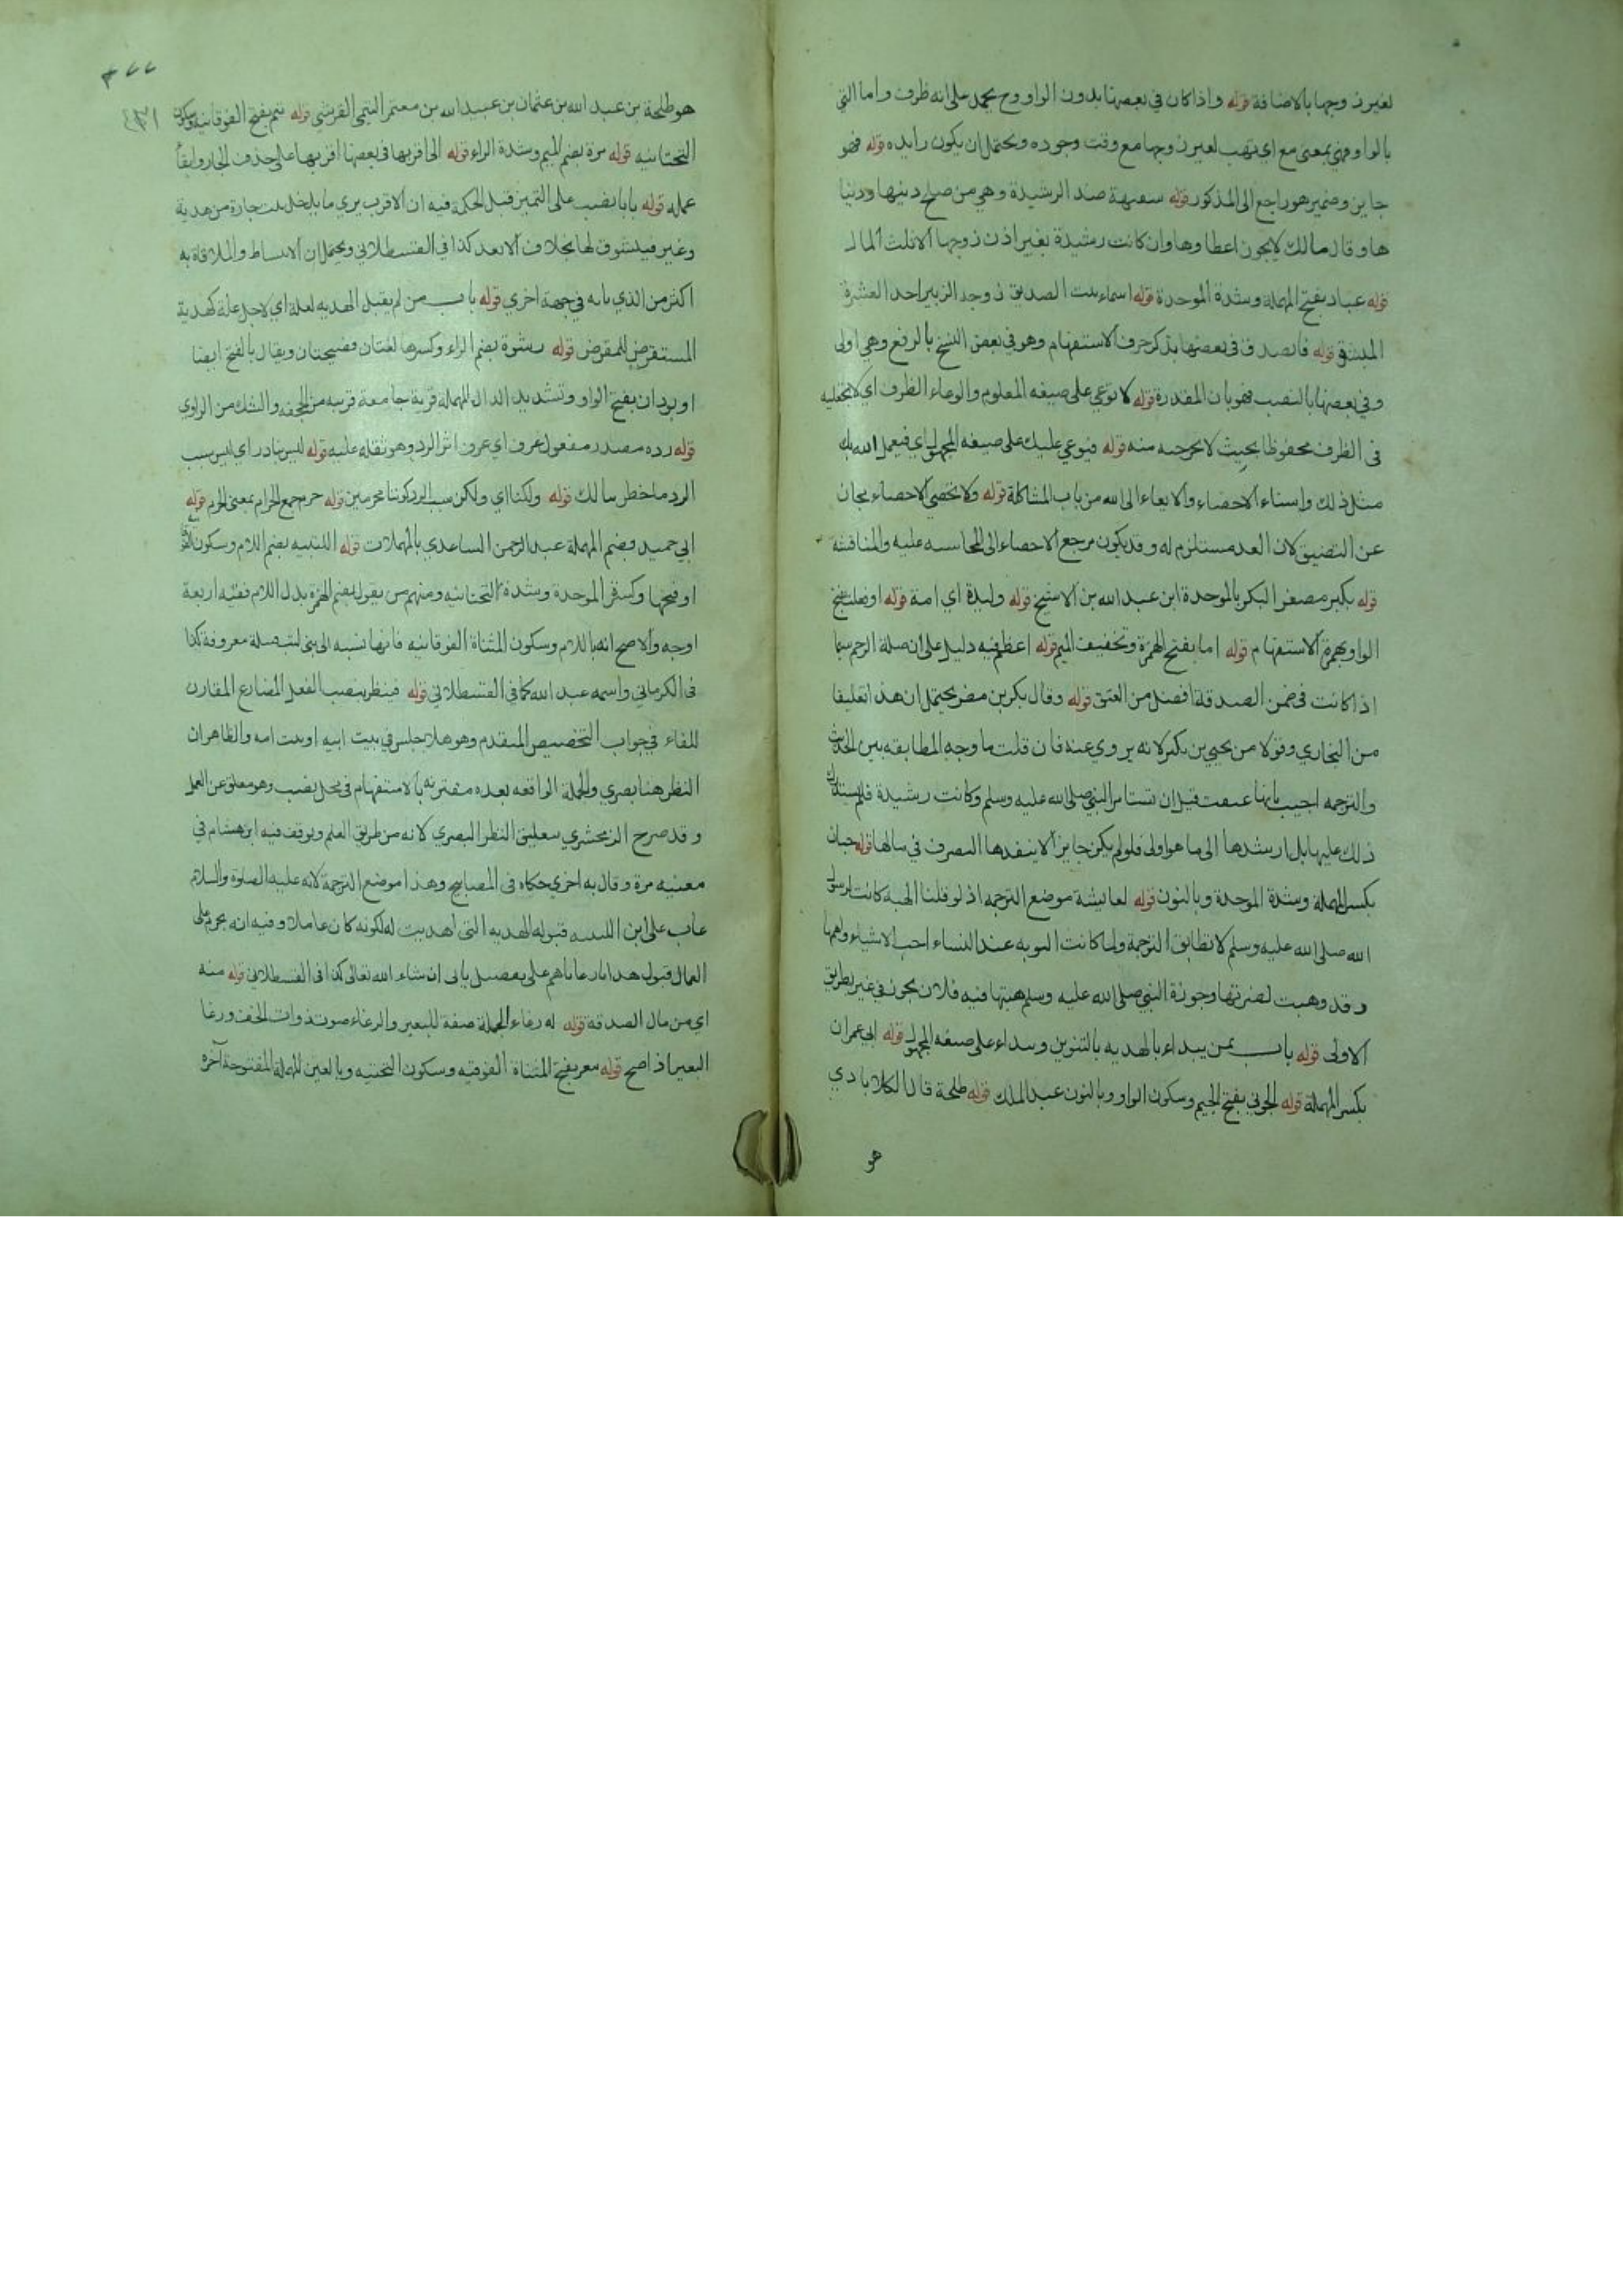 لغير زوجها بالاضافة قوله واذا كان في بعضها بدون الواو وح يحمل على انه ظرف واما التي
بالواو فهي بمعنى مع اي تهب لغير زوجها مع وقت وجوده ويحتمل ان يكون زايده قوله فهو
جايز وضمير هو راجع الى المذكور قوله سفيهة ضد الرشيدة وهي من صلح دينها ودنيا
ها وقال مالك لا يجوز اعطاوها وان كانت رشيدة بغير اذن زوجها الا ثلث المال
قوله عباد بفتح المهملة وشدة الموحدة قوله اسماء بنت الصديق زوجة الزبير احد العشرة
المبشرة قوله فاتصدق في بعضها بذكر حرف الاستفهام وهو في بعض النسخ بالرفع وهي اولى
وفي بعضها بالنصب فهو بان المقدرة قوله لا توعي على صيغه المعلوم والوعاء الظرف اي لا تجعليه
في الظرف محفوظا بحيث لا تخرجيه منه قوله فيوعي عليك على صيغه المجهول اي فيعمل الله بك
مثل ذلك واسناد الاحصاء والايعاء الى الله من باب المشاكلة قوله ولا تحصي الاحصاء مجاز
عن التضييق لان العد مستلزم له وقد يكون مرجع الاحصاء الى المحاسبه عليه والمناقشة
قوله بكير مصغر البكر بالموحدة ابن عبد الله بن الاشج قوله وليدة اي امة قوله اوفعلت بفتح
الواو بهمزة الاستفهام قوله اما بفتح الهمزة وتخفيف الميم قوله اعظم فيه دليل على ان صلة الرحم سيما
اذا كانت في ضمن الصدقة افضل من العتق قوله وقال بكر بن مضر يحتمل ان هذا تعليقا
من البخاري وقولا من يحيي بن بكير لانه يروي عنه فان قلت ما وجه المطابقه بين الحديث
والترجمه اجيب بانها عتقت قبل ان تستامر النبي صلى الله عليه وسلم وكانت رشيدة فلم يستدرك
ذلك عليها بل ارشدها الى ما هو اولى فلو لم يكن جايزا لا ينفذها التصرف في مالها قوله حبان
بكسر المهملة وشدة الموحدة وبالنون قوله لعايشة موضع الترجمه اذ لو قلنا الهبة كانت لرسول
الله صلى الله عليه وسلم لا تطابق الترجمة ولما كانت النوبه عند النساء احب الاشياء واهمها
وقد وهبت لضرتها وجوزة النبي صلى الله عليه وسلم هبتها فيه فلان يجوز في غير بطريق
الاولى قوله باب بمن يبداء بالهديه بالتنوين ويبداء على صيغه المجهول قوله ابي عمران
بكسر المهملة قوله الجوني بفتح الجيم وسكون الواو وبالنون عبد الملك قوله طلحة قال الكلاباذي
هو
٣٢٢
٤٣١
هو طلحة بن عبد الله بن عثمان بن عبيد الله بن معتمر التيمي القرشي قوله تيم بفتح الفوقانيه وسكون
التحتانيه قوله مرة بضم الميم وشدة الراء قوله الى اقربهما في بعضها اقربهما على حذف الجار وابقآ
عمله قوله بابا نصب على التمييز قيل الحكمة فيه ان الاقرب يري ما يدخل بيت جارة من هدية
وغير فيتشوق لها بخلاف الابعد كذا في القسطلاني ويحتمل ان الانبساط والملاقاة به
اكثر من الذي بابه في جهة اخري قوله باب من لم يقبل الهديه لعلة اي لاجل علة كهدية
المستقرض للمقرض قوله رشوة بضم الراء وكسرها لغتان فصيحتان ويقال بالفتح ايضا
او بودان بفتح الواو وتشديد الدال المهملة قرية جامعة قريبه من الجحفه والشك من الراوي
قوله رده مصدر مفعول عرف اي عرف اثر الرد وهو ثقله عليه قوله ليس بنا رد اي ليس سبب
الرد ما خطر ببالك قوله ولكنا اي ولكن سبب الرد كوننا محرمين قوله حرم جمع الحرام بمعنى المحرم قوله
ابي حميد وضم المهملة عبد الرحمن الساعدي بالمهملات قوله اللتبيه بضم اللام وسكون الفوقا
او فتحها وكسر الموحدة وشدة التحتانيه ومنهم من يقول بضم الهمزة بدل اللام ففيه اربعة
اوجه والاصح انه باللام وسكون المثناة الفوقانيه فانها نسبه الى بني لتب قبيلة معروفة كذا
في الكرماني واسمه عبد الله كما في القسطلاني قوله فينظر بنصب الفعل المضارع المقارن
للفاء في جواب التخصيص المتقدم وهو هلا جلس في بيت ابيه او بيت امه والظاهر ان
النظر هنا بصري والجملة الواقعه بعده مقترنه بالاستفهام في محل نصب وهو معلق عن العمل
وقد صرح الزمخشري بتعليق النظر البصري لانه من طريق العلم وتوقف فيه ابن هشام في
مغنيه مرة وقال به اخري حكاه في المصابيح وهذا موضع الترجمة لانه عليه الصلوة والسلام
عاب على ابن اللتبيه قبوله الهديه التي اهديت له لكونه كان عاملا وفيه انه يحرم على
العمال قبول هدايا رعاياهم على تفصيل ياتي ان شاء الله تعالى كذا في القسطلاني قوله منه
اي من مال الصدقة قوله له رغاء الجملة صفة للبعير والرغاء صوت ذوات الخف ورغا
البعير اذا صح قوله تيعر بفتح المثناة الفوقيه وسكون التحتيه وبالعين المهملة المفتوحة آخره